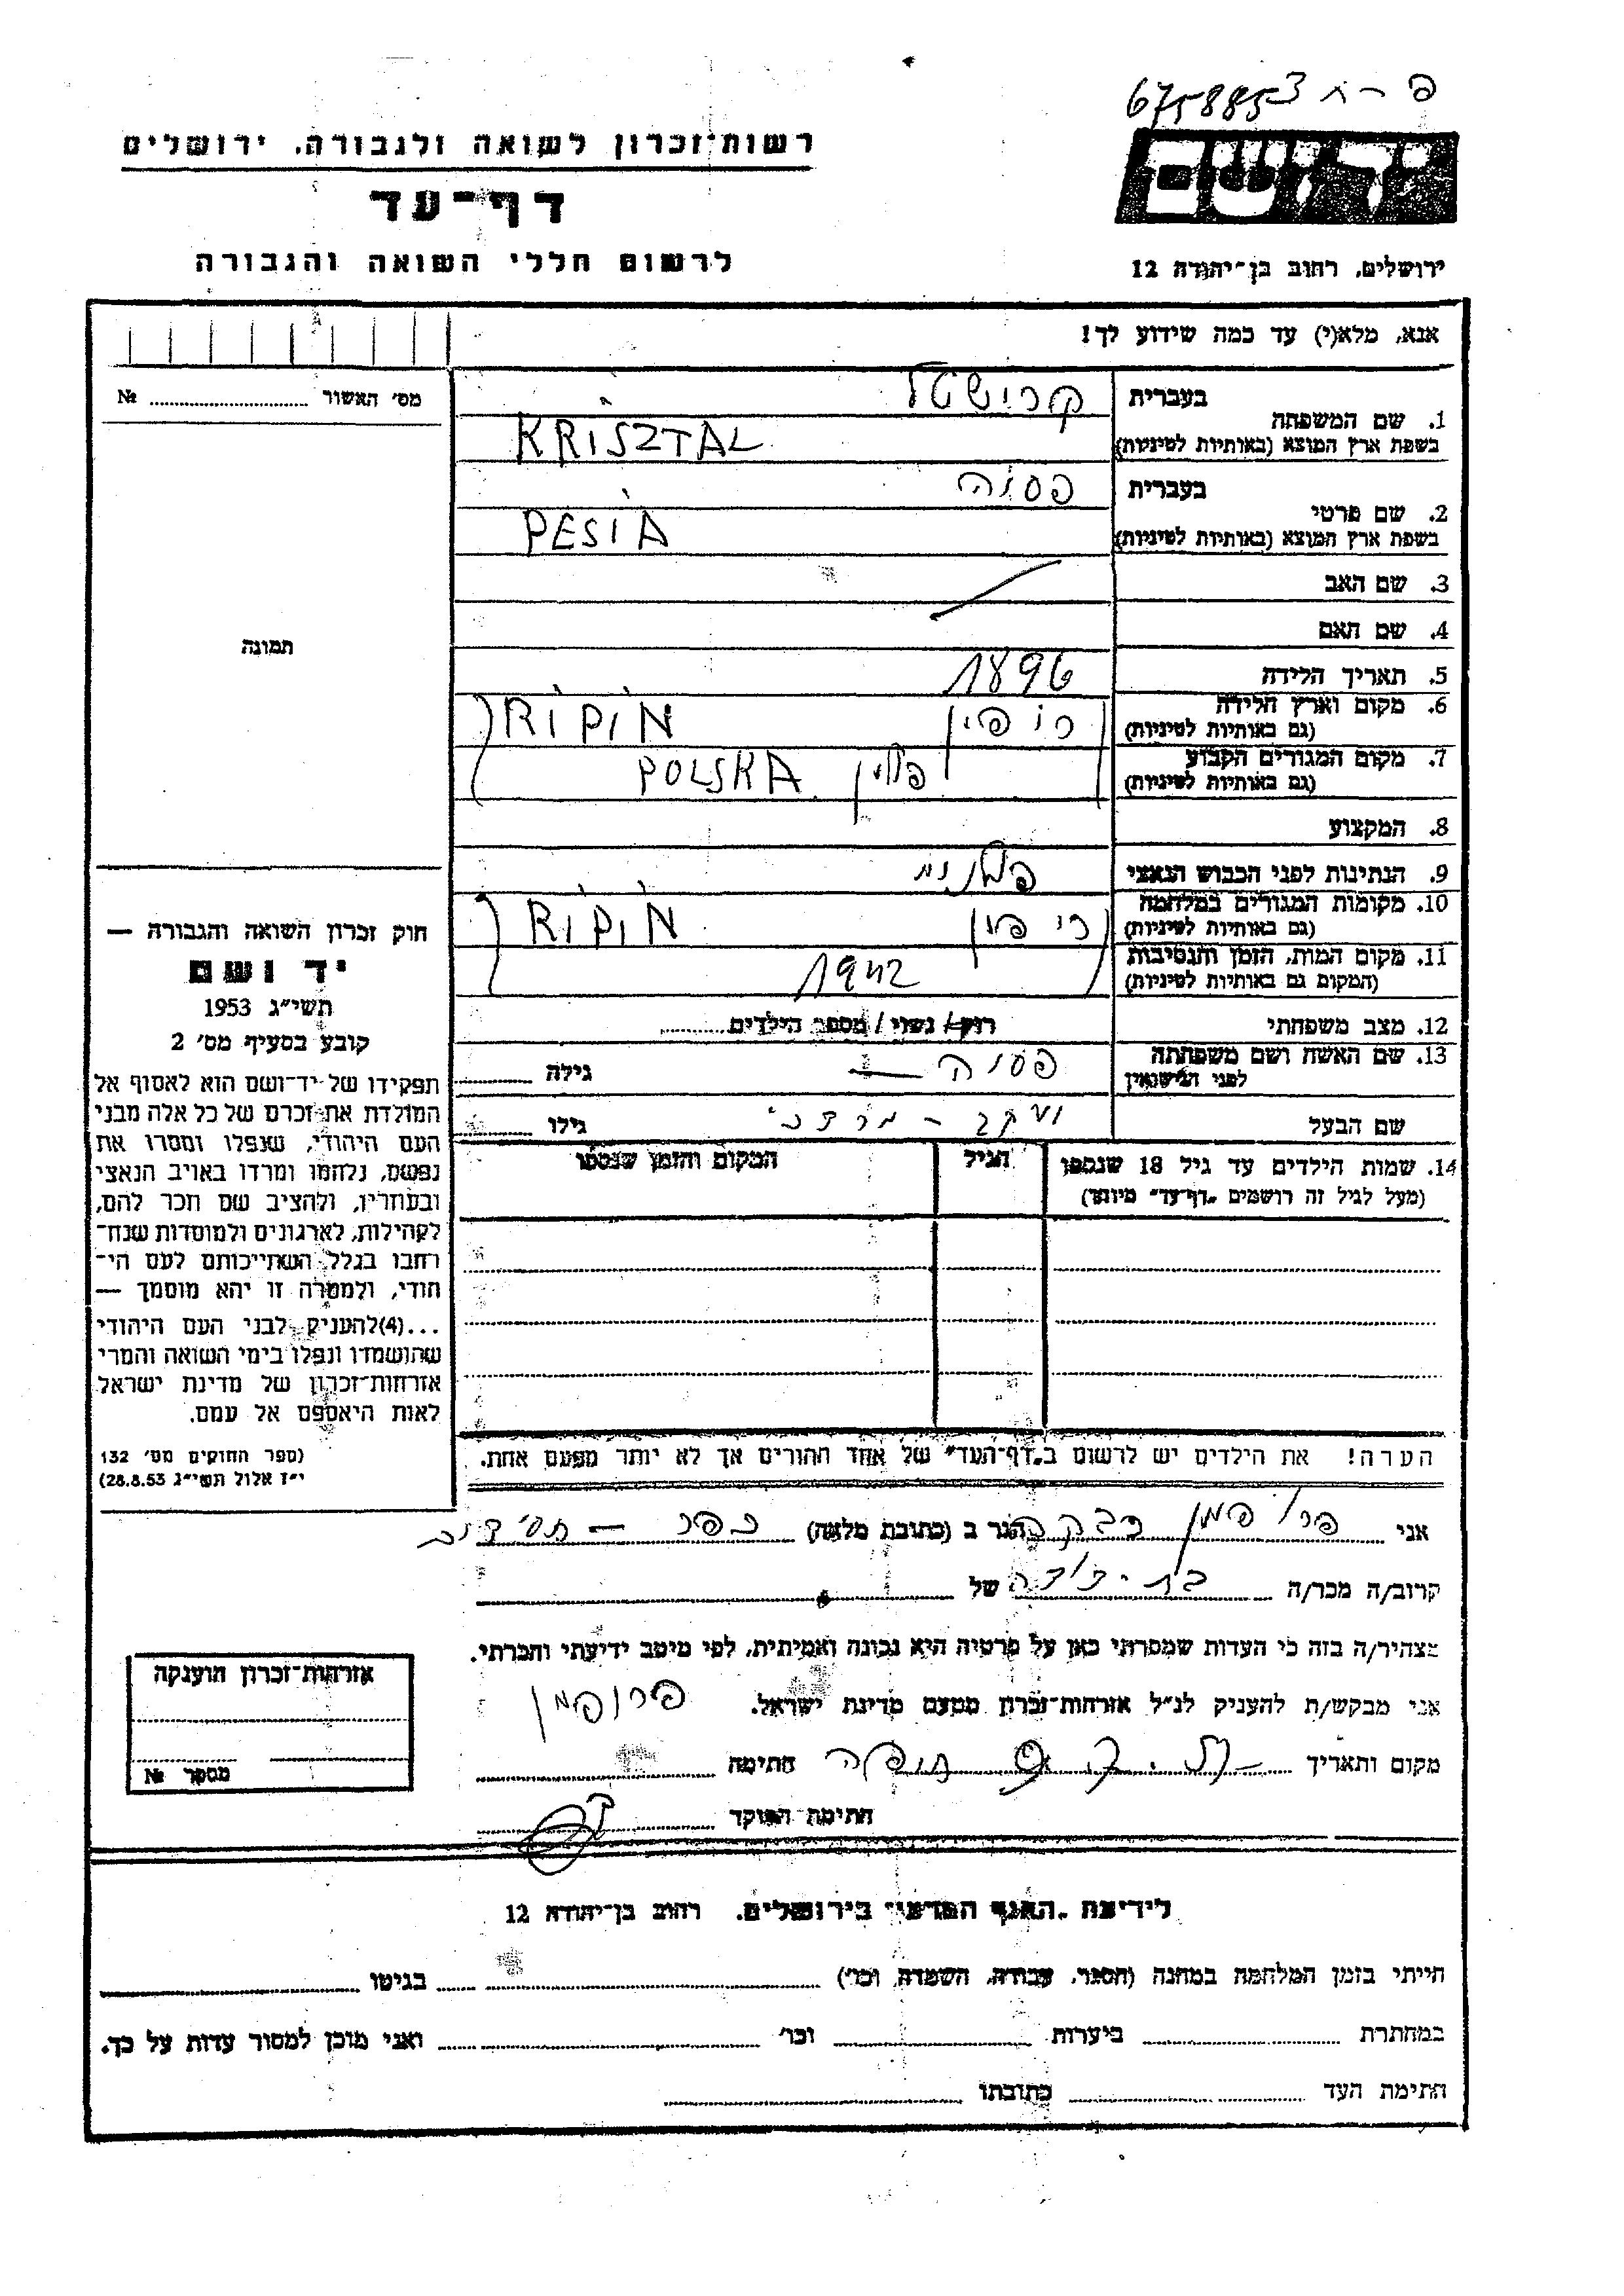 פ - ח 6758853
רשות־זכרון לשואה ולגבורה, ירושלים
יד ושם
דף־עד
לרשום חללי השואה והגבורה
ירושלים, רחוב בן־יהודה 12
אנא, מלא(י) עד כמה שידוע לך!
מס׳ האשור № 
1. שם המשפחה
בעברית קרישטל
בשפת ארץ המוצא (באותיות לטיניות) KRISZTAL
2. שם פרטי
בעברית פסיה
בשפת ארץ המוצא (באותיות לטיניות) PESIA
3. שם האב
4. שם האם
5. תאריך הלידה 1896
6. מקום וארץ הלידה
(גם באותיות לטיניות) ריפין RIPIN
7. מקום המגורים הקבוע
(גם באותיות לטיניות) פולין POLSKA
8. המקצוע
9. הנתינות לפני הכבוש הנאצי פולנית
10. מקומות המגורים במלחמה
(גם באותיות לטיניות) ריפין RIPIN
11. מקום המות, הזמן והנסיבות
(המקום גם באותיות לטיניות) 1942
12. מצב משפחתי רווק / נשוי / מספר הילדים
13. שם האשה ושם משפחתה
לפני הנישואין פסיה גילה
שם הבעל יעקב - מרדכי גילו
14. שמות הילדים עד גיל 18 שנספו
(מעל לגיל זה רושמים „דף־עד” מיוחד)
הגיל
המקום והזמן שנספו
תמונה
חוק זכרון השואה והגבורה —
יד ושם
תשי״ג 1953
קובע בסעיף מס׳ 2
תפקידו של יד־ושם הוא לאסוף אל
המולדת את זכרם של כל אלה מבני
העם היהודי, שנפלו ומסרו את
נפשם, נלחמו ומרדו באויב הנאצי
ובעוזריו, ולהציב שם וזכר להם,
לקהילות, לארגונים ולמוסדות שנח־
רבו בגלל השתייכותם לעם הי־
הודי, ולמטרה זו יהא מוסמך —
...(4)להעניק לבני העם היהודי
שהושמדו ונפלו בימי השואה והמרי
אזרחות־זכרון של מדינת ישראל
לאות היאספם אל עמם.
(ספר החוקים מס׳ 132
י״ז אלול תשי״ג 28.8.53)
הערה! את הילדים יש לרשום ב„דף־העד” של אחד ההורים אך לא יותר מפעם אחת.
אני פרופמן רבקה הגר ב (כתובת מלאה) כפר - חסידים
קרוב/ה מכר/ה בת-דודה של
מצהיר/ה בזה כי העדות שמסרתי כאן על פרטיה היא נכונה ואמיתית, לפי מיטב ידיעתי והכרתי.
אני מבקש/ת להעניק לנ״ל אזרחות־זכרון מטעם מדינת ישראל.
מקום ותאריך חיפה חתימה פרופמן
חתימת הפוקד
אזרחות־זכרון הוענקה
מספר №
לידיעת „האגף המדעי” בירושלים, רחוב בן־יהודה 12
הייתי בזמן המלחמה במחנה (הסגר, עבודה, השמדה, וכו׳) בגיטו
במחתרת ביערות וכו׳ ואני מוכן למסור עדות על כך.
חתימת העד כתובתו